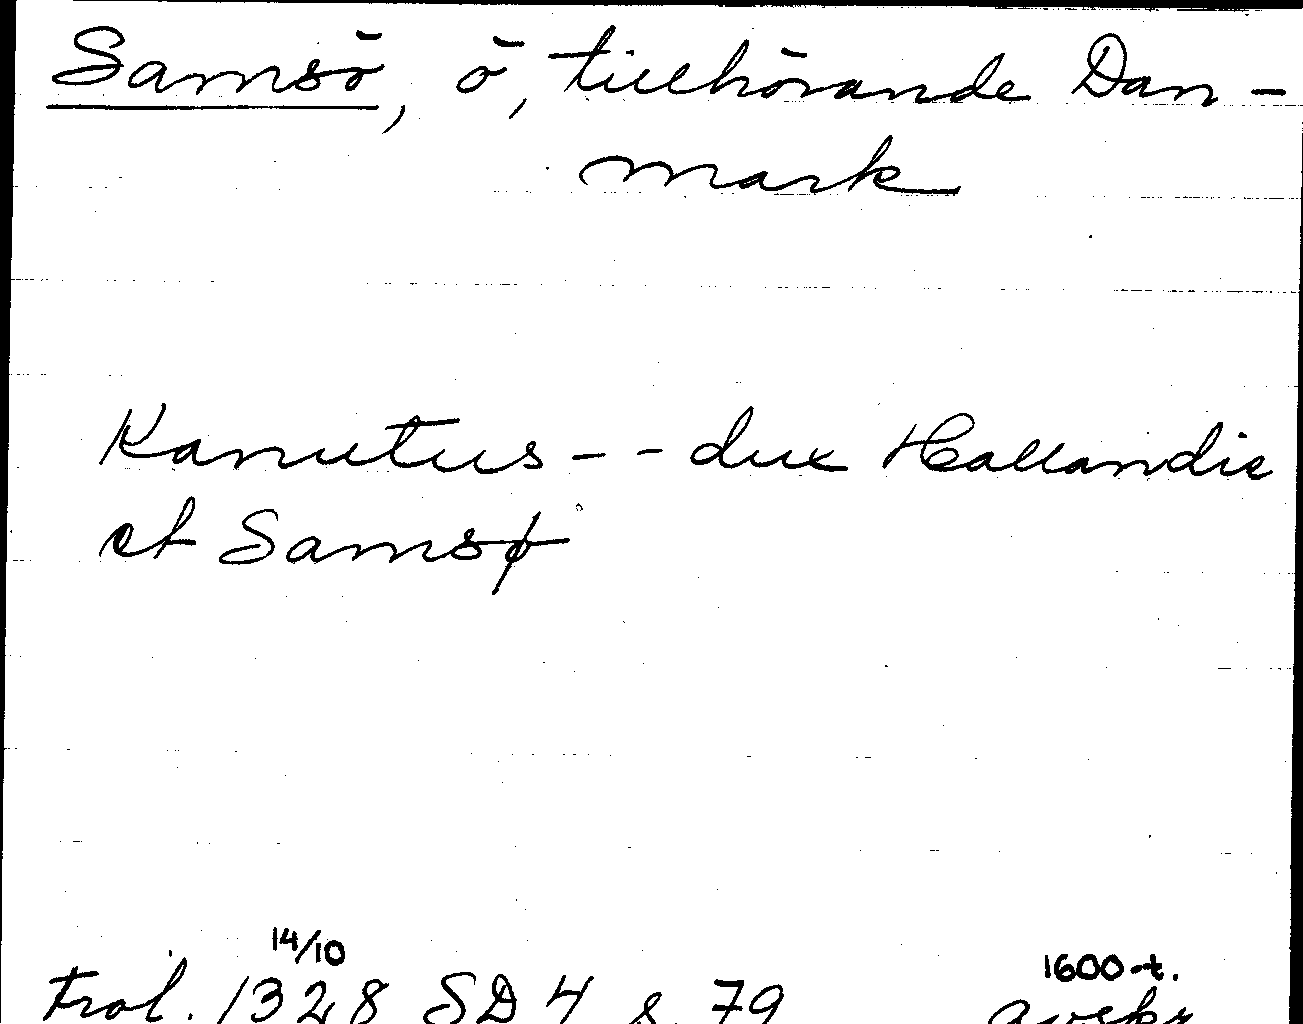 Samsö, ö, tillhörande Dan-
mark
Kanutus - - dux Hallandie
et Samsø
14/10
1600-t.
trol. 1328 SD 4 s. 79 avskr